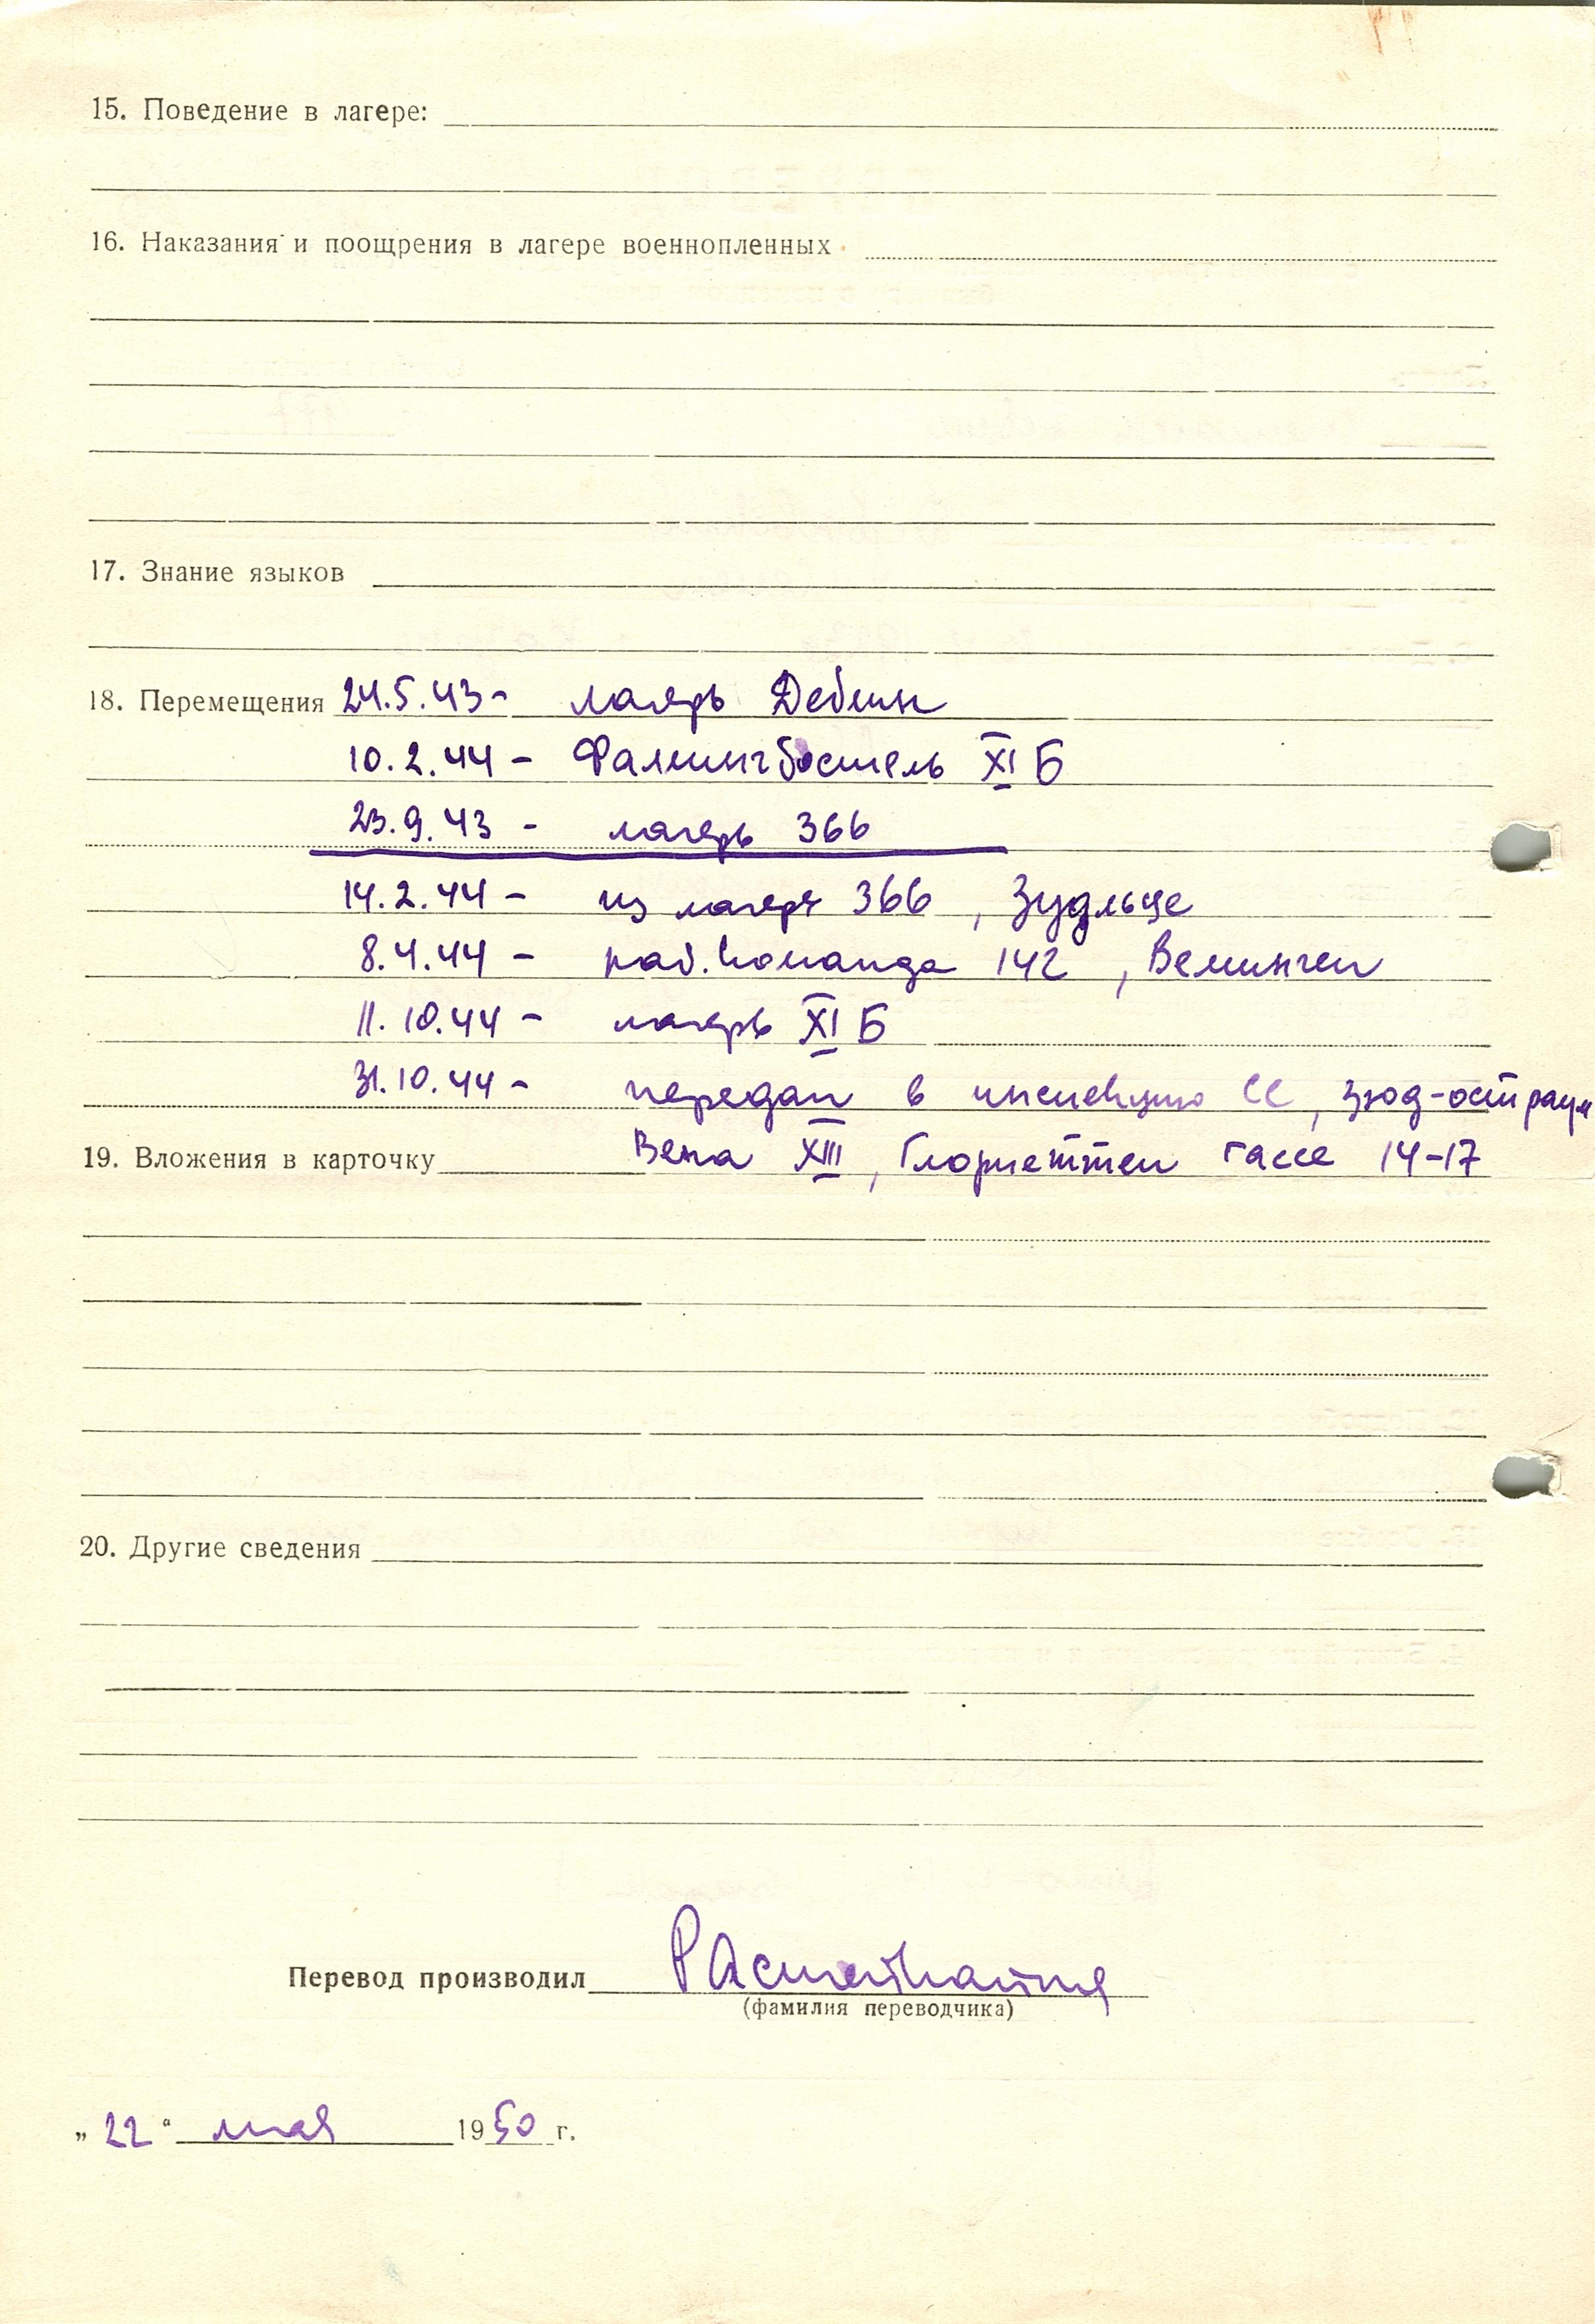 15. Поведение в лагере:
16. Наказания и поощрения в лагере военнопленных
17. Знание языков
18. Перемещения 24.5.43 - лагерь Деблин
10.2.44 - Фаллингбостель XI Б
23.9.43 - лагерь 366
14.2.44 - из лагеря 366, Зудльце
8.4.44 - раб. команда 142, Велинген
11.10.44 - лагерь XI Б
31.10.44 - передан в инспекцию СС, зюд-ост раум
19. Вложения в карточку Вена XIII, Глориеттен гассе 14-17
20. Другие сведения
Перевод производил
(фамилия переводчика)
„22“ мая 1950 г.